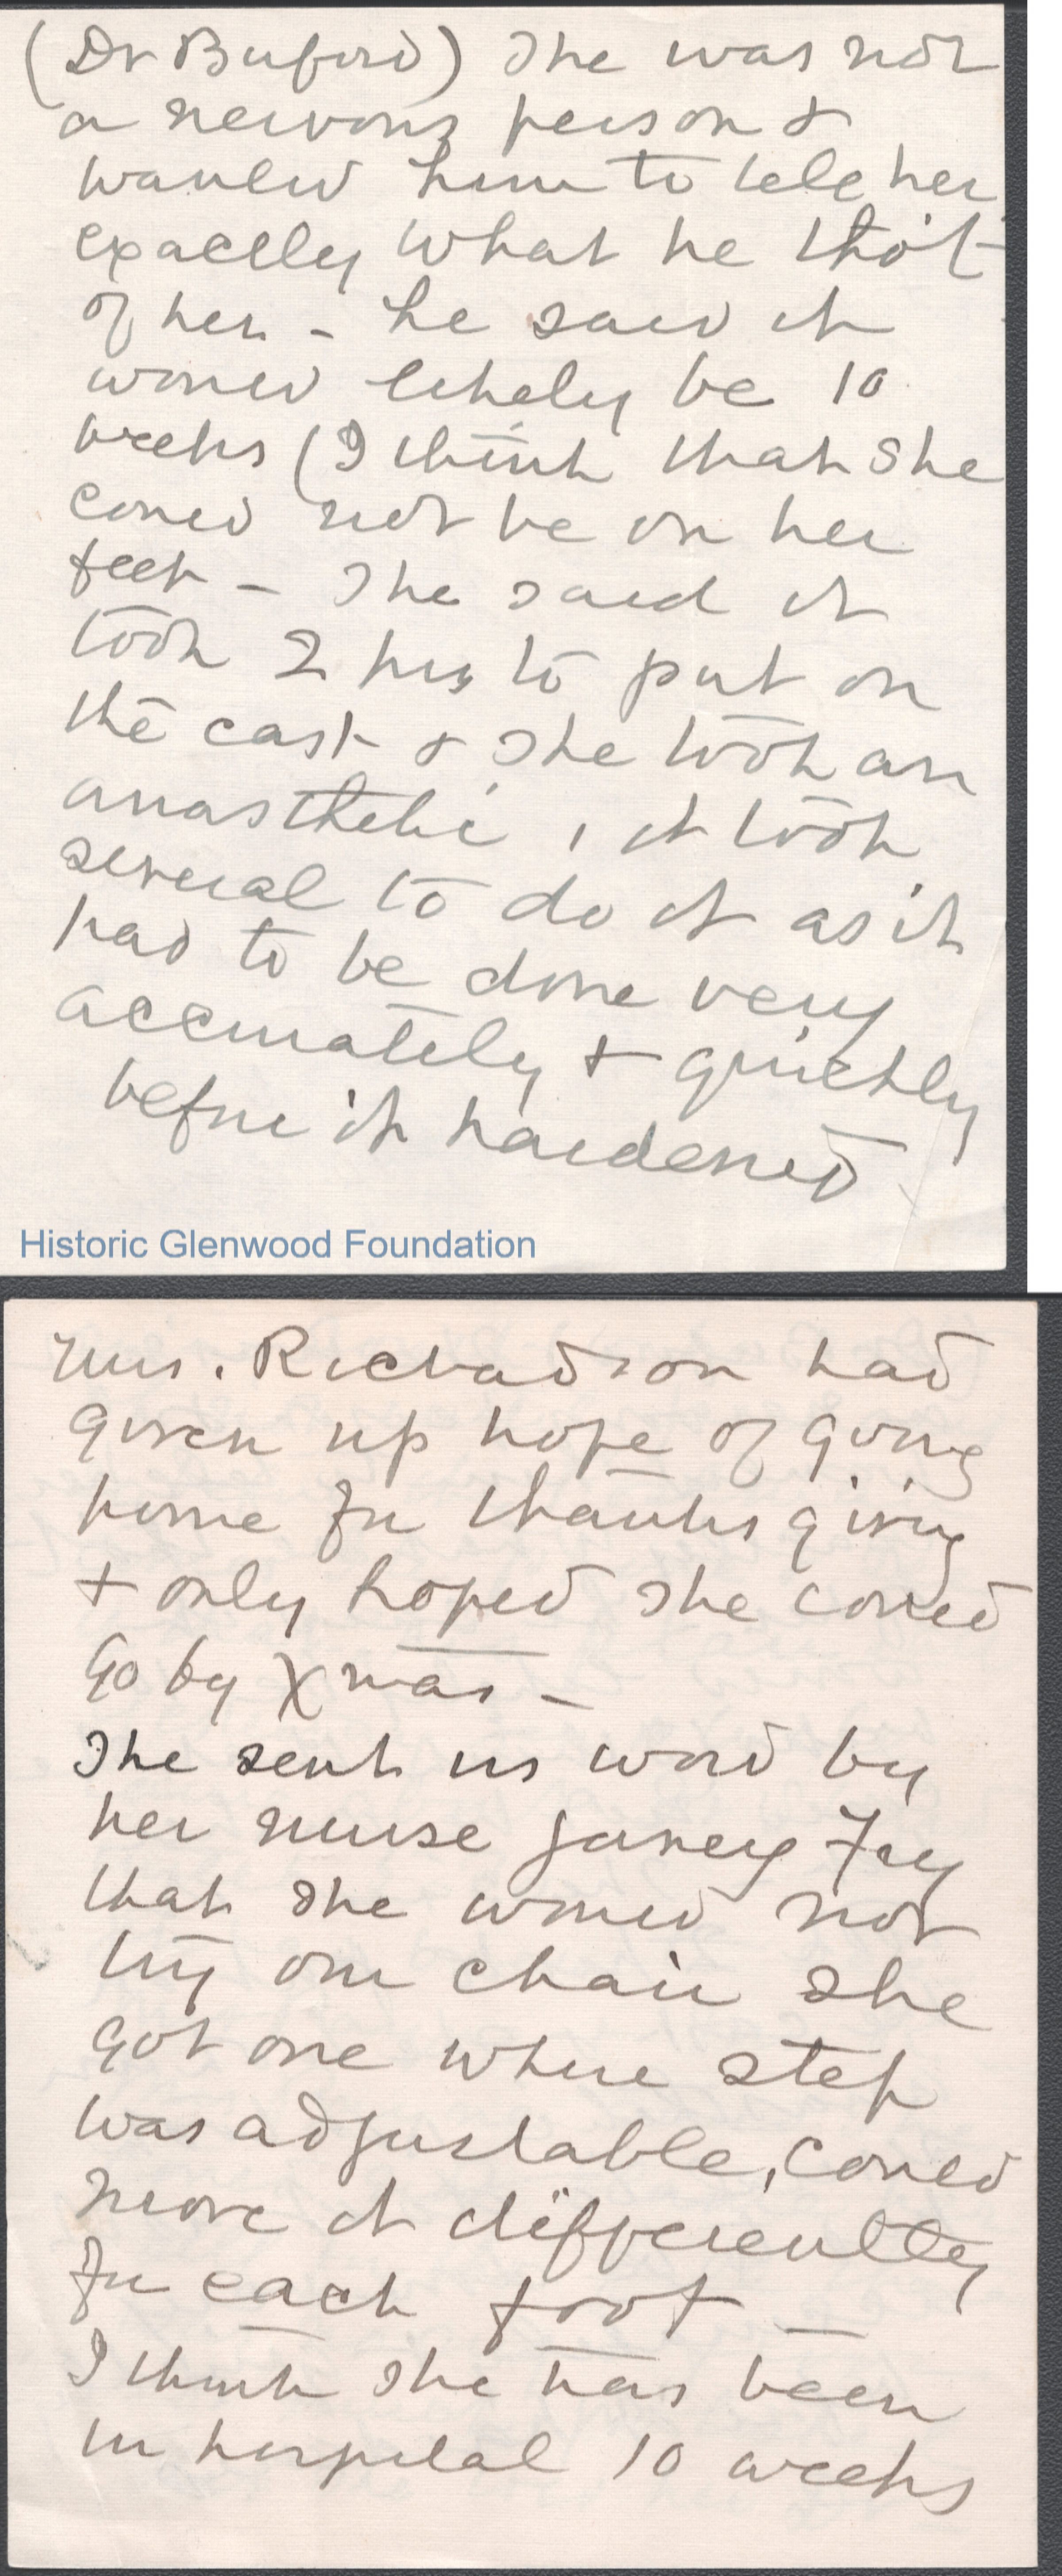 (Dr Buford) She was not
a nervous person &
wanted him to tell her
exactly what he tho't
of her - he said it
would likely be 10
weeks (I think that she
could not be on her
feet - She said it
took 2 hrs to put on
the cast & she took an
anasthetic, it took
several to do it as it
had to be done very
accurately & quickly
before it hardened
Historic Glenwood Foundation
Mrs. Richardson had
given up hope of going
home for thanksgiving
+ only hoped she could
go by Xmas -
She sent us word by
her nurse Janey Fry
that she would not
try our chair she
got one where step
was adjustable, could
move it differently
for each foot -
I think she has been
in hospital 10 weeks